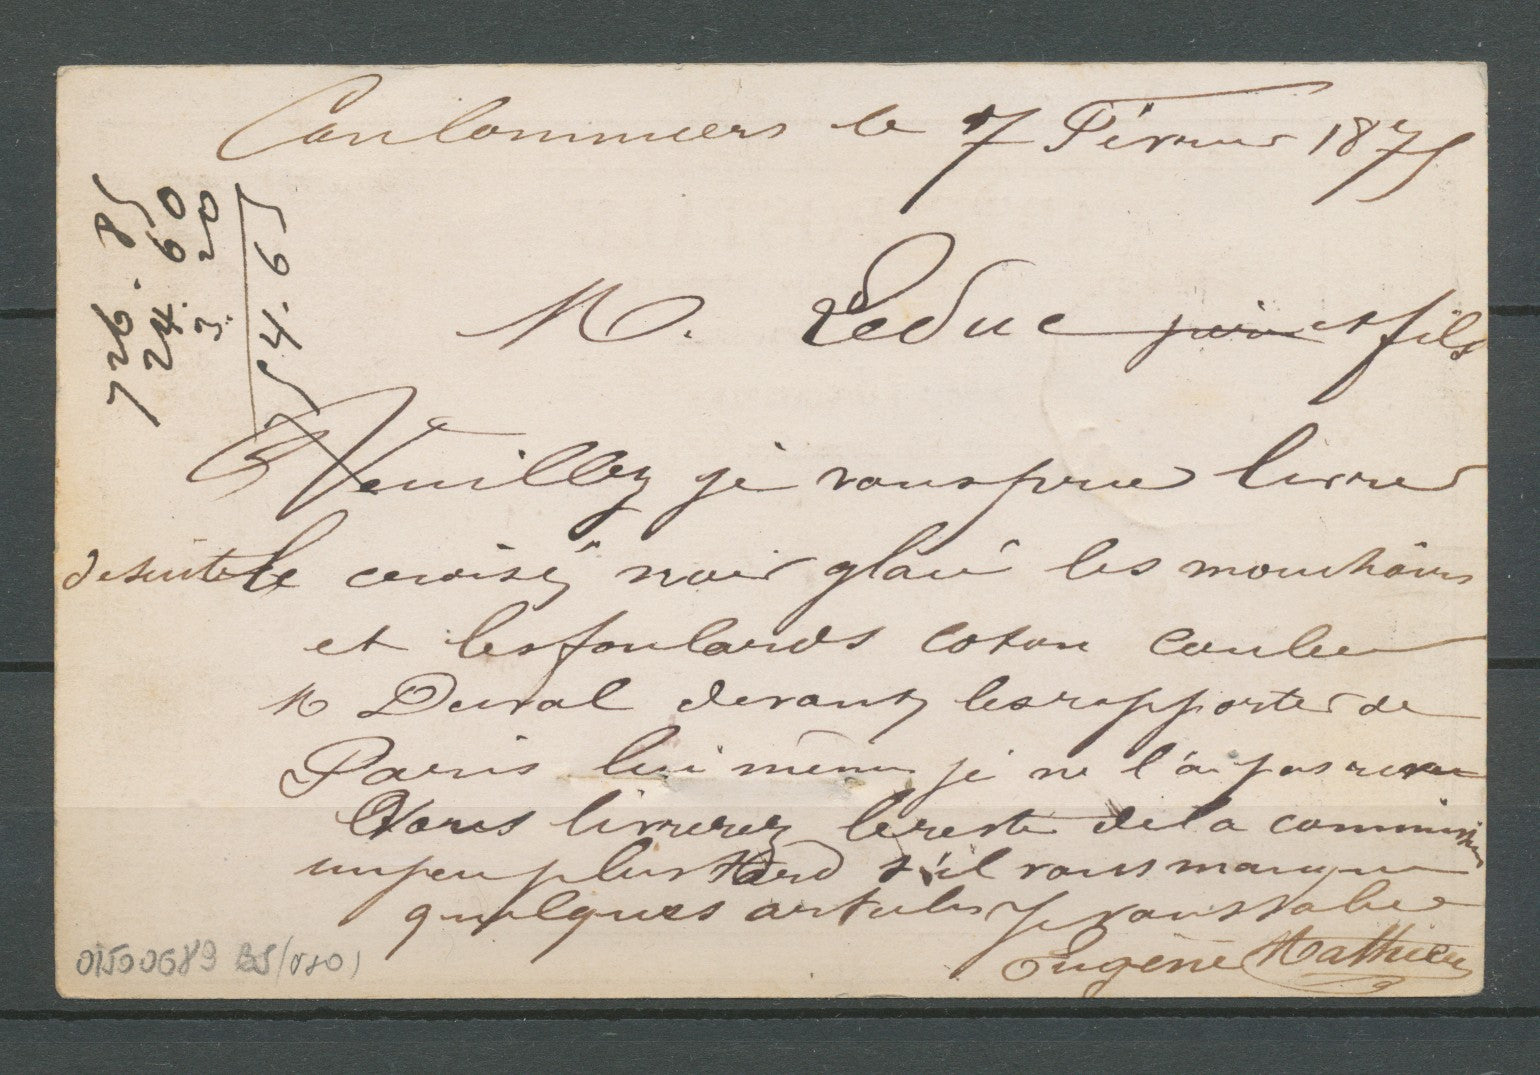 Coulommiers le 7 Février 1875
M. Leduc père et fils
Veuillez je vous prie livrer
de suite le croisé noir glacé les mouchoirs
et les foulards coton couleur
M Duval devant les rapporter de
Paris lui même je ne l'ai pas revu
Vous livrerez le reste de la commission
un peu plus tard s'il vous manque
quelques articles Je vous salue
Eugène Mathieu
726.85
24.60
3.20
54.65
01500689